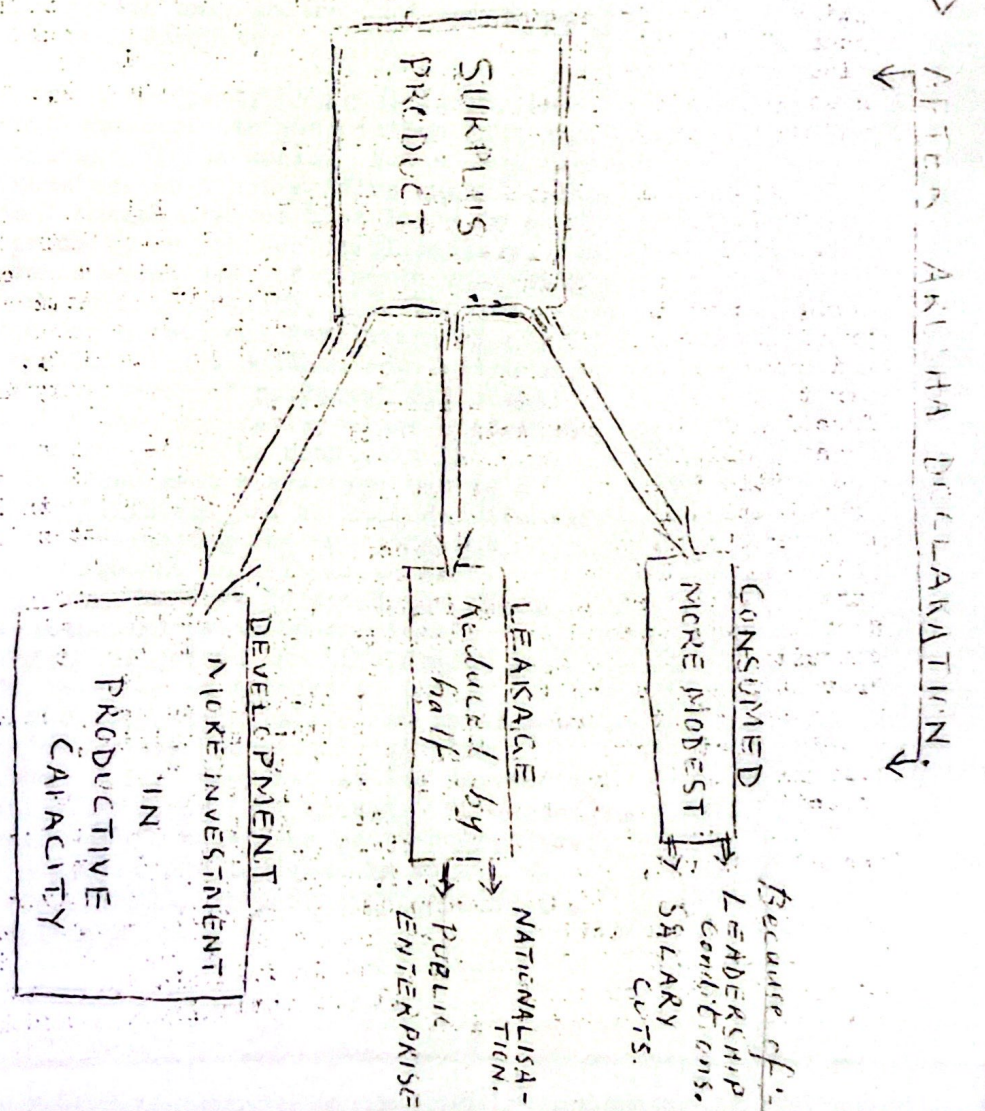 AFTER ARUSHA DECLARATION.
Because of:
CONSUMED
MORE MODEST
LEADERSHIP
conditions.
SALARY
CUTS
SURPLUS
PRODUCT
LEAKAGE
Reduced by
half
NATIONALISA-
TION.
PUBLIC
ENTERPRISE
DEVELOPMENT
MORE INVESTMENT
IN
PRODUCTIVE
CAPACITY